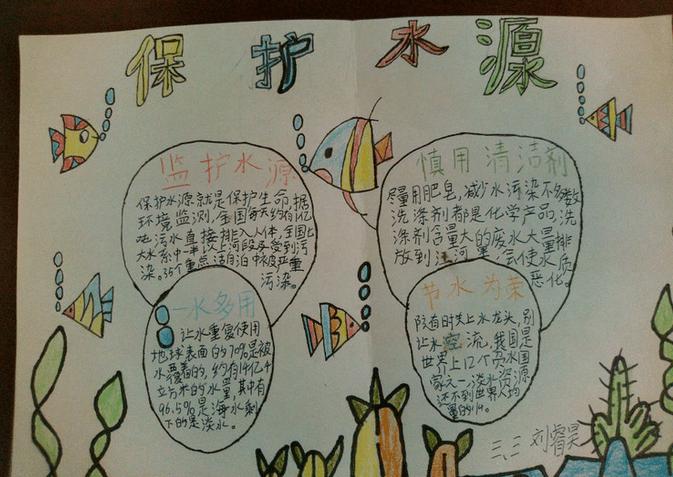 保护水源
监护水源
保护水源就是保护生命,据
环境监测,全国每天约有1亿
吨污水直接排入人体,全国七
大水系中一半以上河段受到污
染。35个重点湖泊中被严重
污染。
慎用清洁剂
尽量用肥皂,减少水污染不多数
洗涤剂都是化学产品,洗
涤剂含量大的废水大量排
放到江河里,会使水质
恶化。
一水多用
让水重复使用
地球表面的70%是被
水覆盖的,约有14亿4
立方米的水量,其中有
96.5%是海水剩
下的是淡水。
节水为荣
随时关上水龙头,别
让水空流,我国是
世界上12个贫水国
家之一,淡水资源
还不到世界人均
量的1/4。
三、二 刘睿昊